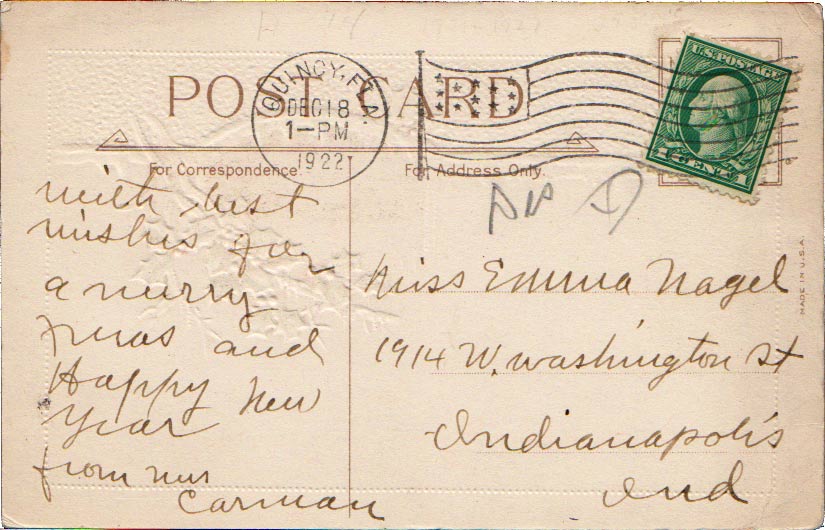 U.S. POSTAGE
1 CENT 1
POST CARD
QUINCY, FLA.
DEC 18
1-PM
1922
For Correspondence.
For Address Only.
MADE IN U.S.A.
with best
wishes for
a merry
xmas and
Happy New
Year
from mrs
Carman
Miss Emma Nagel
1914 W. washington st
Indianapolis
Ind